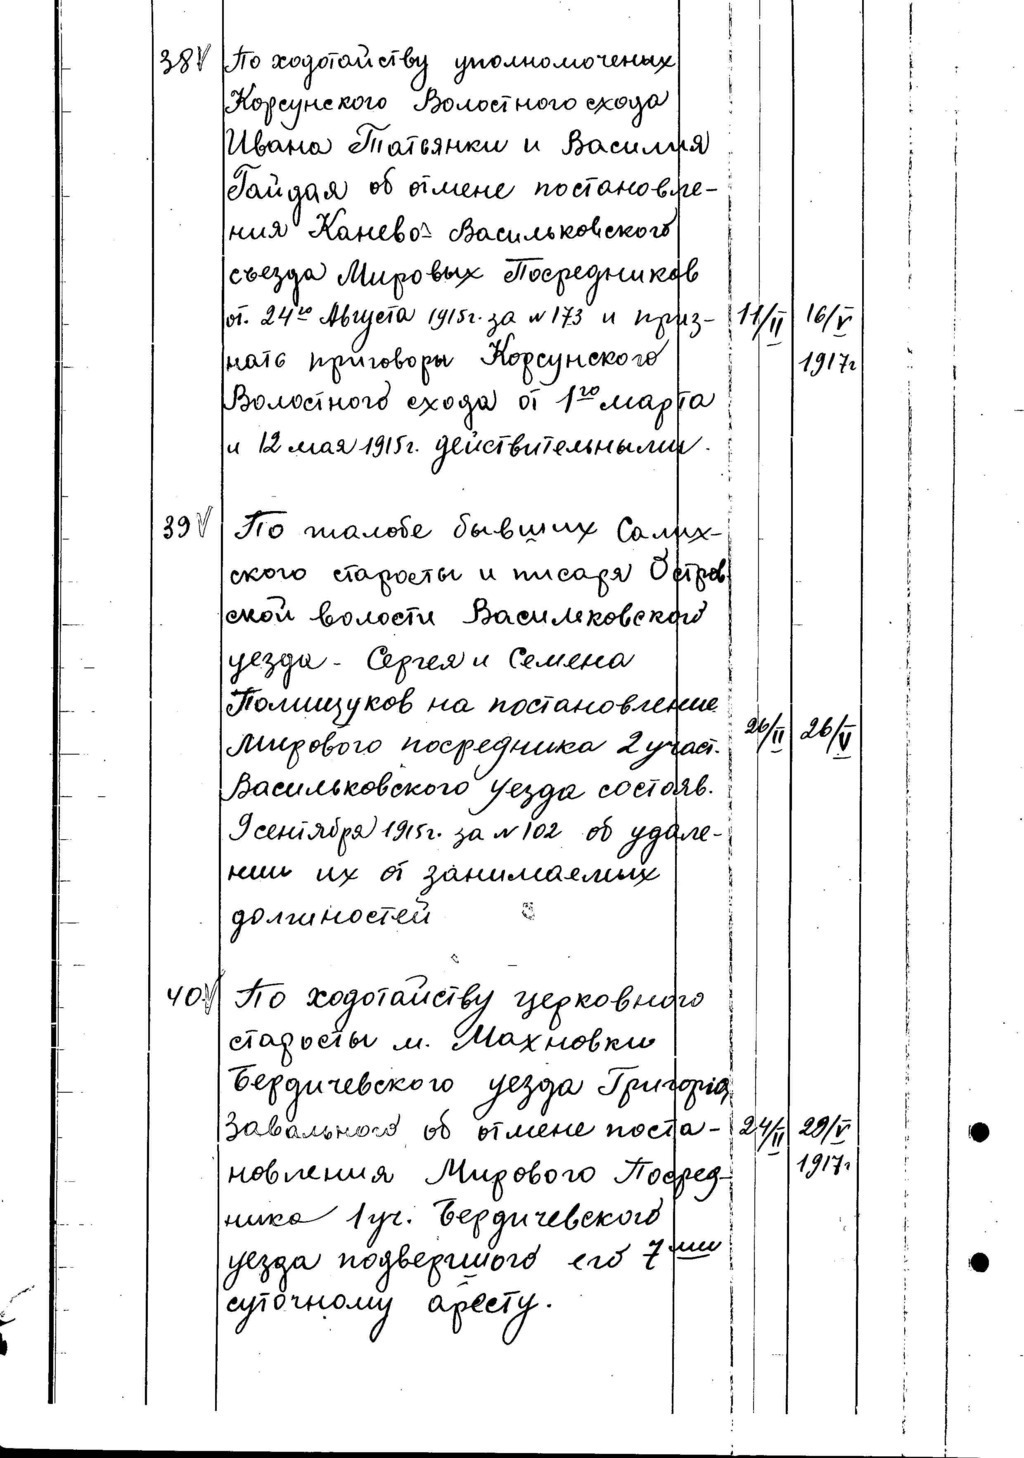 38 По ходотайству уполномоченых
Корсунского Волостного схода
Ивана Татьянки и Василия
Гайдая об отмене постановле-
ния Канево-Васильковского
съезда Мировых Посредников
от 24го Августа 1915г. за №173 и приз- 11/II 16/V
нать приговоры Корсунского 1917г
Волостного схода от 1го марта
и 12 мая 1915г. действительными.
39 По жалобе бывших
ского старосты и писаря Остров
ской волости Васильковского
уезда - Сергея и Семена
Полищуков на постановление
Мирового посредника 2 участ. 26/II 26/V
Васильковского уезда состояв.
9 сентября 1915г. за №102 об удале-
нии их от занимаемых
должностей
40 По ходотайству церковного
старосты м. Махновки
Бердичевского уезда Григорія
Завального об отмене поста- 24/II 29/V
новления Мирового Посред- 1917г
ника 1 уч. Бердичевского
уезда подвергшого его 7ми
суточному аресту.